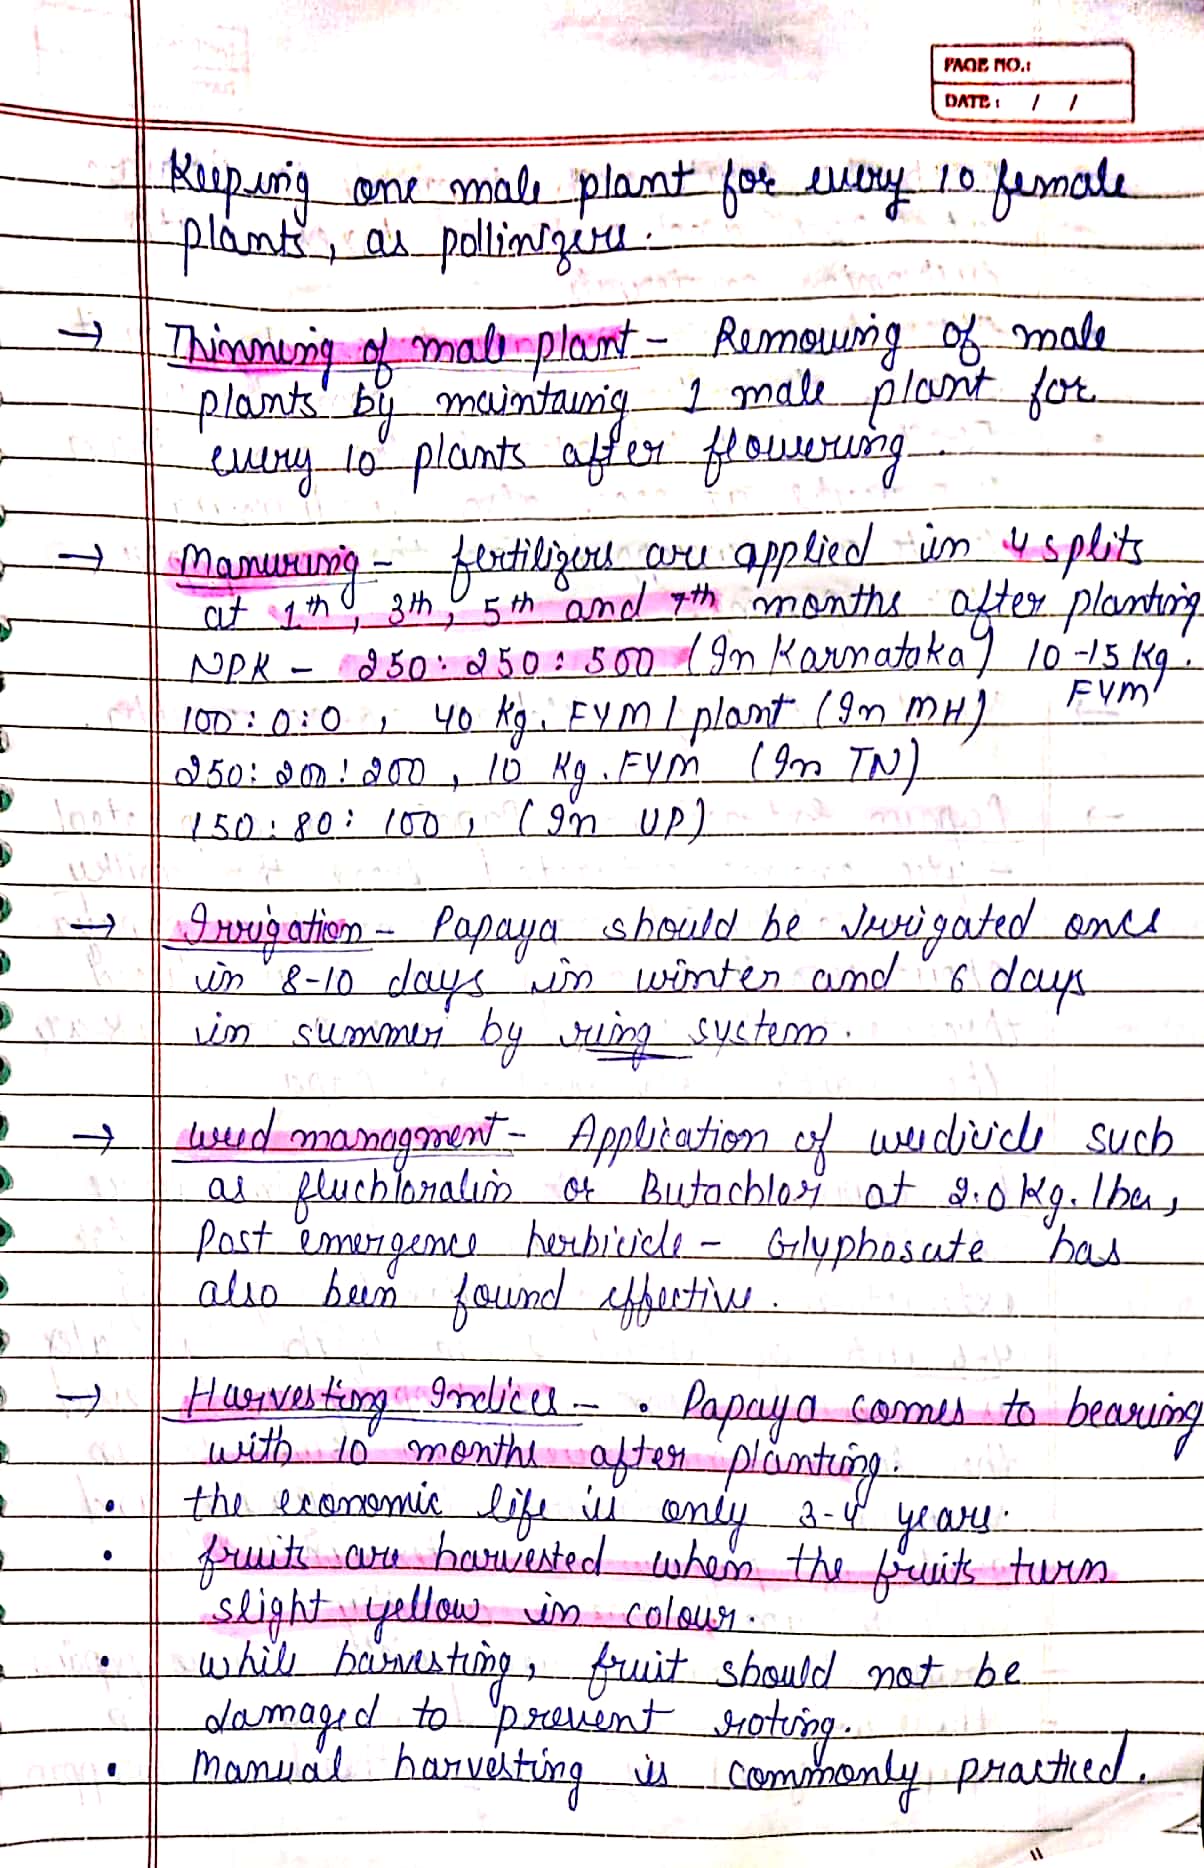 PAGE NO.:
DATE: / /
Keeping one male plant for every 10 female
plants, as pollinizers.
→ Thinning of male plant - Removing of male
plants by maintaing 1 male plant for
every 10 plants after flowering.
→ Manuring - fertilizers are applied in 4 splits
at 1th, 3th, 5th and 7th months after planting
NPK - 250:250:500 (In Karnataka) 10-15 Kg.
FYM
100:0:0, 40 Kg. FYM / plant (In MH)
250:200:200, 10 Kg. FYM (In TN)
150:80:100, (In UP)
→ Irrigation - Papaya should be Irrigated once
in 8-10 days in winter and 6 days
in summer by ring system.
→ weed managment - Application of weedicide such
as fluchloralin or Butachlor at 2.0 Kg./ha,
Post emergence herbicide - Glyphosate has
also been found effective.
→ Harvesting Indices - • Papaya comes to bearing
with 10 months after planting.
• the economic life is only 3-4 years.
• fruits are harvested when the fruits turn
slight yellow in colour.
• while harvesting, fruit should not be
damaged to prevent roting.
• Manual harvesting is commonly practiced.